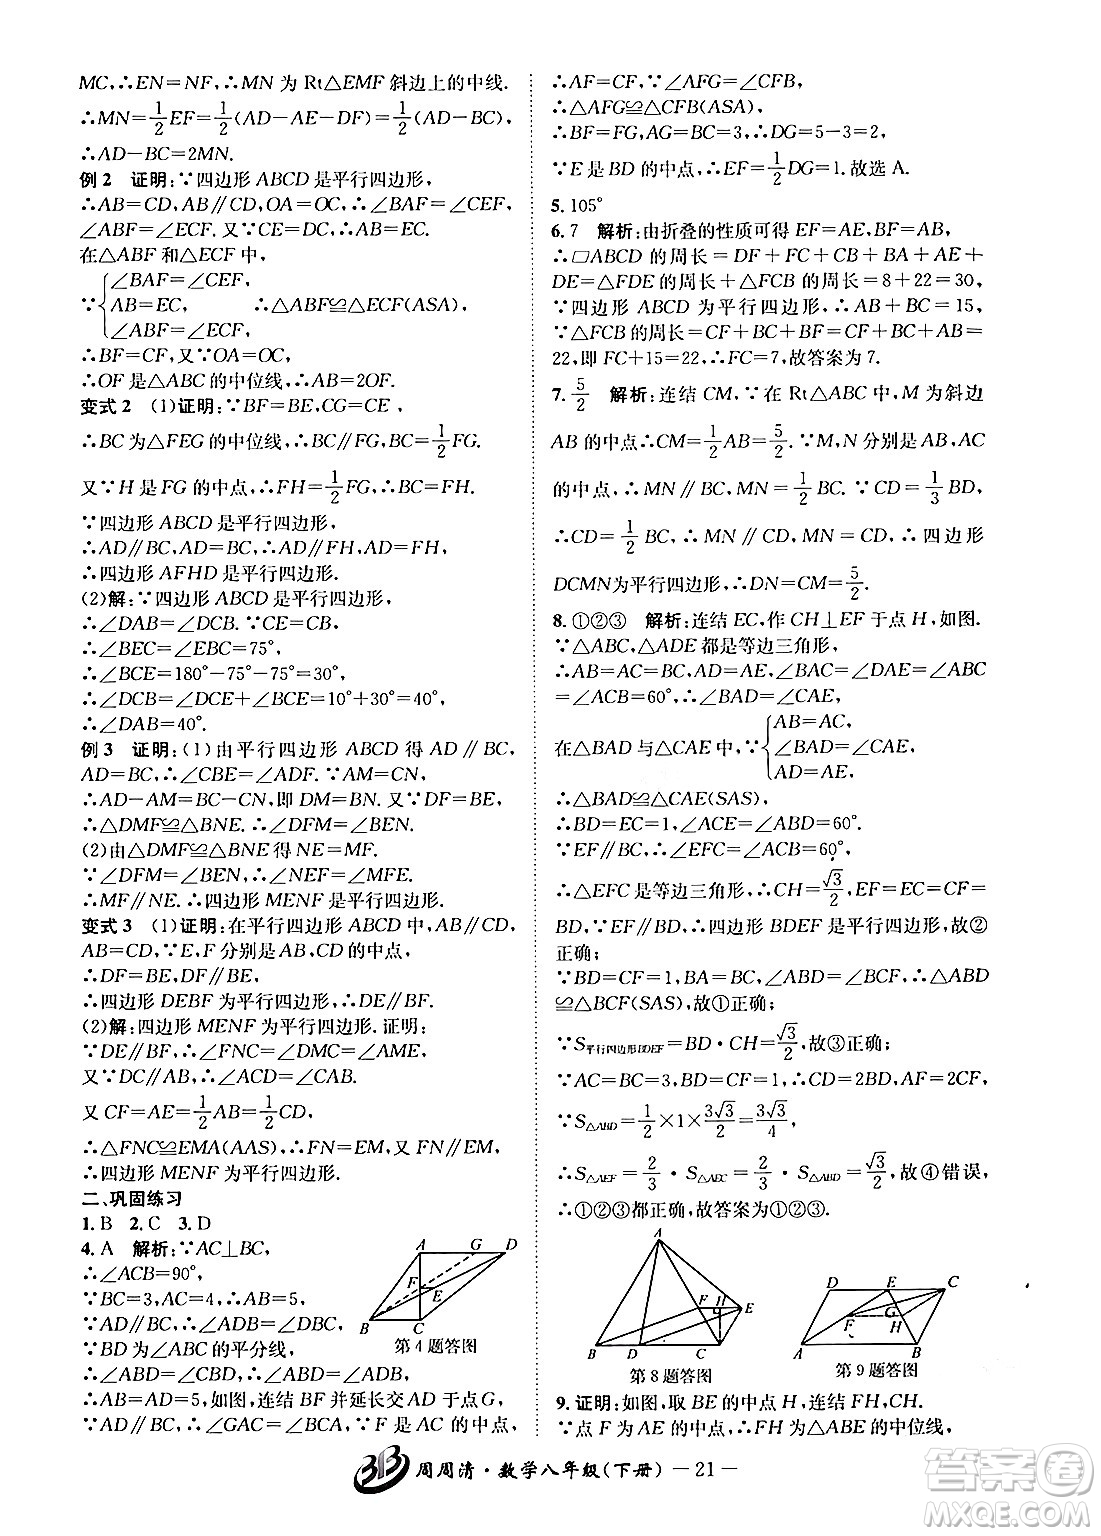 MC,∴EN=NF,∴MN 为 Rt△EMF 斜边上的中线.
∴MN=1/2EF=1/2(AD-AE-DF)=1/2(AD-BC),
∴AD-BC=2MN.
例 2 证明:∵四边形 ABCD 是平行四边形,
∴AB=CD,AB∥CD,OA=OC,∴∠BAF=∠CEF,
∠ABF=∠ECF.又∵CE=DC,∴AB=CE.
在△ABF 和△ECF 中,
∵{∠BAF=∠CEF,
AB=EC, ∴△ABF≌△ECF(ASA),
∠ABF=∠ECF,
∴BF=CF,又∵OA=OC,
∴OF 是△ABC 的中位线,∴AB=2OF.
变式 2 (1)证明:∵BF=BE,CG=CE,
∴BC 为△FEG 的中位线,∴BC∥FG,BC=1/2FG.
又∵H 是 FG 的中点,∴FH=1/2FG,∴BC=FH.
∵四边形 ABCD 是平行四边形,
∴AD∥BC,AD=BC,∴AD∥FH,AD=FH,
∴四边形 AFHD 是平行四边形.
(2)解:∵四边形 ABCD 是平行四边形,
∴∠DAB=∠DCB.∵CE=CB,
∴∠BEC=∠EBC=75°,
∴∠BCE=180°-75°-75°=30°,
∴∠DCB=∠DCE+∠BCE=10°+30°=40°,
∴∠DAB=40°.
例 3 证明:(1)由平行四边形 ABCD 得 AD∥BC,
AD=BC,∴∠CBE=∠ADF.∵AM=CN,
∴AD-AM=BC-CN,即 DM=BN.又 DF=BE,
∴△DMF≌△BNE.∴∠DFM=∠BEN.
(2)由△DMF≌△BNE 得 NE=MF.
∵∠DFM=∠BEN,∴∠NEF=∠MFE.
∴MF∥NE.∴四边形 MENF 是平行四边形.
变式 3 (1)证明:在平行四边形 ABCD 中,AB∥CD,
AB=CD.∵E,F 分别是 AB,CD 的中点,
∴DF=BE,DF∥BE,
∴四边形 DEBF 为平行四边形,∴DE∥BF.
(2)解:四边形 MENF 为平行四边形.证明:
∵DE∥BF,∴∠FNC=∠DMC=∠AME,
又∵DC∥AB,∴∠FCN=∠EAM,
又 CF=AE=1/2AB=1/2CD,
∴△FNC≌EMA(AAS),∴FN=EM,又 FN∥EM,
∴四边形 MENF 是平行四边形.
二、巩固练习
1.B 2.C 3.D
4.A 解析:∵AC⊥BC,
∴∠ACB=90°,
∵BC=3,AC=4,∴AB=5,
∵AD∥BC,∴∠ADB=∠DBC,
∵BD 为∠ABC 的平分线,
∴∠ABD=∠CBD,∴∠ABD=∠ADB,
∴AB=AD=5,如图,连结 BF 并延长交 AD 于点 G,
∵AD∥BC,∴∠GAC=∠BCA,∵F 是 AC 的中点,
A G D
F E
B C
第 4 题答图
∴AF=CF,∵∠AFG=∠CFB,
∴△AFG≌△CFB(ASA),
∴BF=FG,AG=BC=3,∴DG=5-3=2,
∵E 是 BD 的中点,∴EF=1/2DG=1.故选 A.
5.105°
6.7 解析:由折叠的性质可得 EF=AE,BF=AB,
∴▱ABCD 的周长=DF+FC+CB+BA+AE+
DE=△FDE 的周长+△FCB 的周长=8+22=30,
∵四边形 ABCD 为平行四边形,∴AB+BC=15,
∵△FCB 的周长=CF+BC+BF=CF+BC+AB=
22,即 FC+15=22,∴FC=7,故答案为 7.
7.5/2 解析:连结 CM,∵在 Rt△ABC 中,M 为斜边
AB 的中点,∴CM=1/2AB=5/2.∵M,N 分别是 AB,AC
的中点,∴MN∥BC,MN=1/2BC.∵CD=1/3BD,
∴CD=1/2BC,∴MN∥CD,MN=CD,∴四边形
DCMN为平行四边形,∴DN=CM=5/2.
8.①②③ 解析:连结 EC,作 CH⊥EF 于点 H,如图.
∵△ABC,△ADE 都是等边三角形,
∴AB=AC=BC,AD=AE,∠BAC=∠DAE=∠ABC
=∠ACB=60°,∴∠BAD=∠CAE,
在△BAD 与△CAE 中,∵{AB=AC,
∠BAD=∠CAE,
AD=AE,
∴△BAD≌△CAE(SAS),
∴BD=EC=1,∠ACE=∠ABD=60°.
∵EF∥BC,∴∠EFC=∠ACB=60°,
∴△EFC 是等边三角形,∴CH=√3/2,EF=EC=CF=
BD,∵EF∥BD,∴四边形 BDEF 是平行四边形,故②
正确;
∵BD=CF=1,BA=BC,∠ABD=∠BCF,∴△ABD
≌△BCF(SAS),故①正确;
∵S平行四边形BDEF=BD·CH=√3/2,故③正确;
∵AC=BC=3,BD=CF=1,∴CD=2BD,AF=2CF,
∵S△ABD=1/2×1×3√3/2=3√3/4,
∴S△AEF=2/3·S△AEC=2/3·S△ABD=√3/2,故④错误,
∴①②③都正确,故答案为①②③.
A
F H E
B D C
第 8 题答图
D E C
F G H
A B
第 9 题答图
9.证明:如图,取 BE 的中点 H,连结 FH,CH.
∵点 F 为 AE 的中点,∴FH 为△ABE 的中位线,
周周清·数学八年级(下册) —21—
答案圈
MXQE.COM